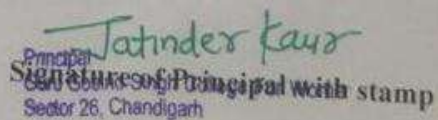 Jatinder Kaur
Principal
Signature of Principal with stamp
Sector 26, Chandigarh